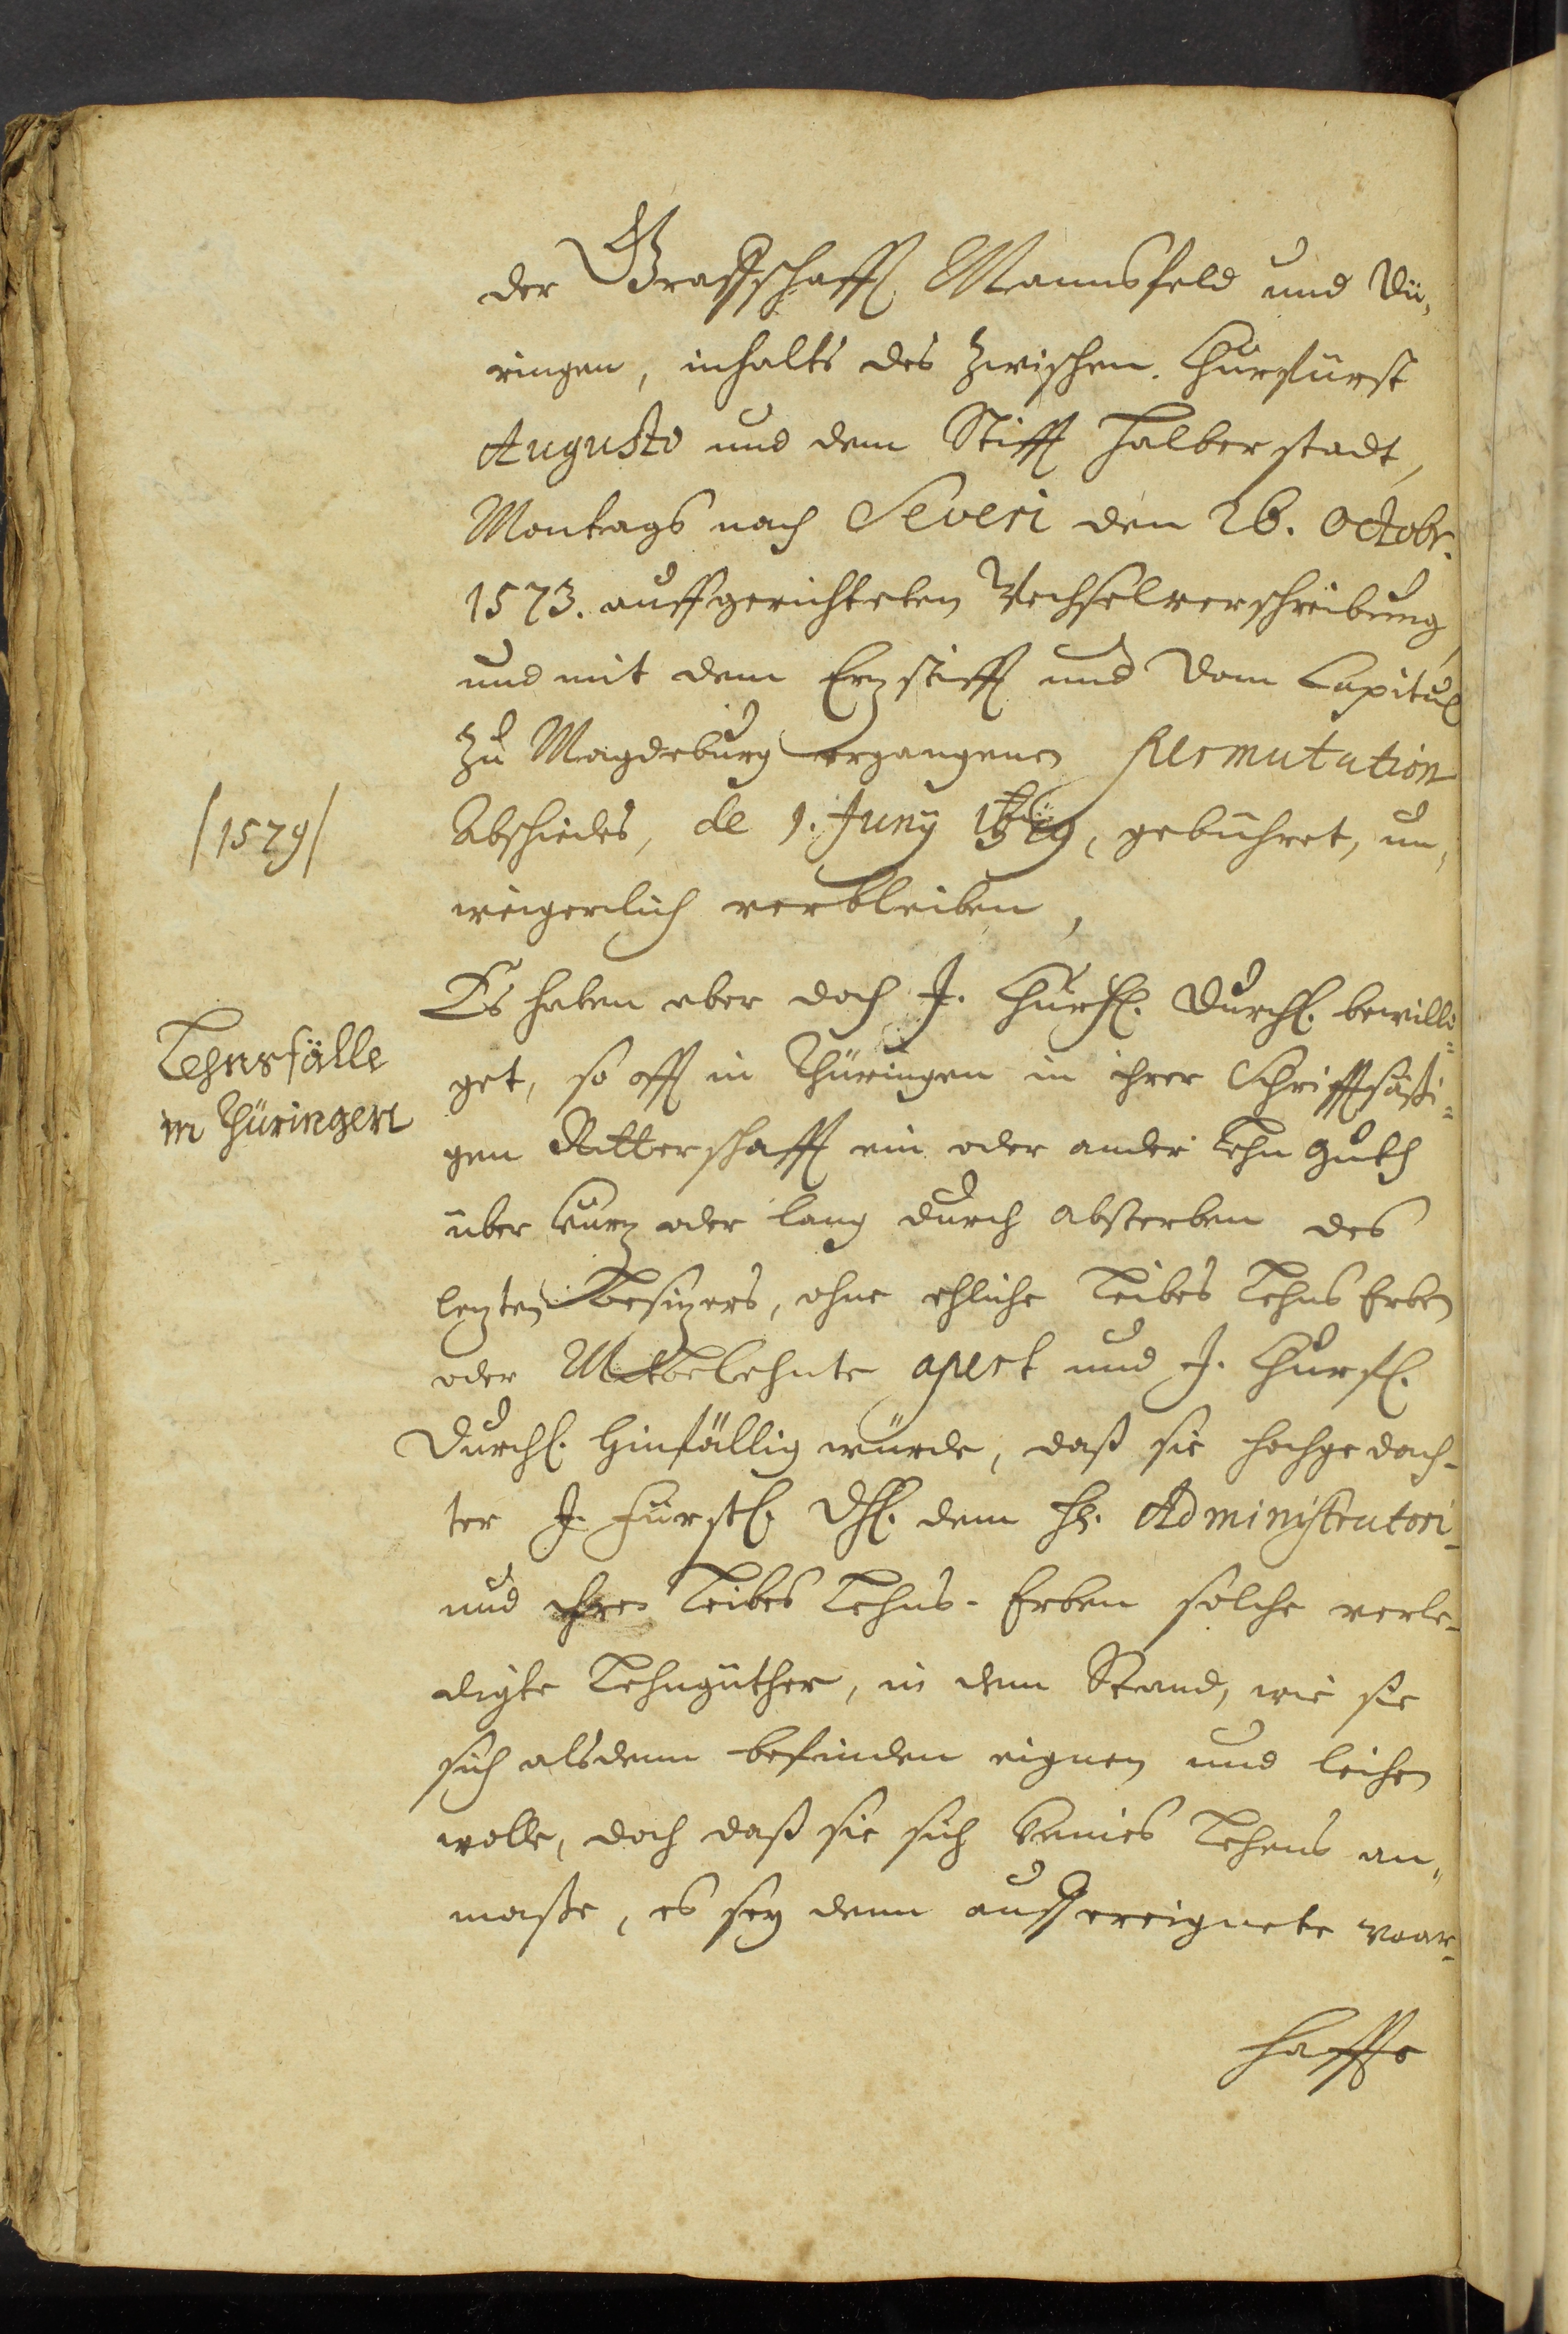 der Graffschafft Mannsfeld und Dü,
ringen, inhalts des zwischen Churfürst
Augusto und dem Stifft Halberstadt,
Montags nach Severi den 26. Octobr.
1573. auffgerichteten Wechselverschreibung,
und mit dem Erzstifft und Dom Capitul
zu Magdeburg ergangenen Permutation
/1579/
Abschiedes, de 9. Juny gebühret, un,
weigerlich verbleiben,
Es haben aber doch J. Churfl. Durchl. bewilli=
Lehnsfälle
in Thüringen
get, so offt in Thüringen in ihrer Schrifftsäßi=
gen Ritterschafft ein oder ander Lehn guth
über kurz oder lang durch absterben des
lezten Besizers, ohne ehliche Leibes Lehns Erben
oder Mitbelehnte apert und J. Churfl.
Durchl. hinfällig würde, daß sie hochgedach-
ter J. Fürstl. Dhl. dem H. Administratori
und ihren Leibes Lehns-Erben solche verle-
digte Lehngüther, in dem Stand, wie sie
sich alsdenn befinden eignen und leihen
wolle, doch daß sie sich keines Lehens an,
maße, es sey denn auff ereignete waar-
haffte